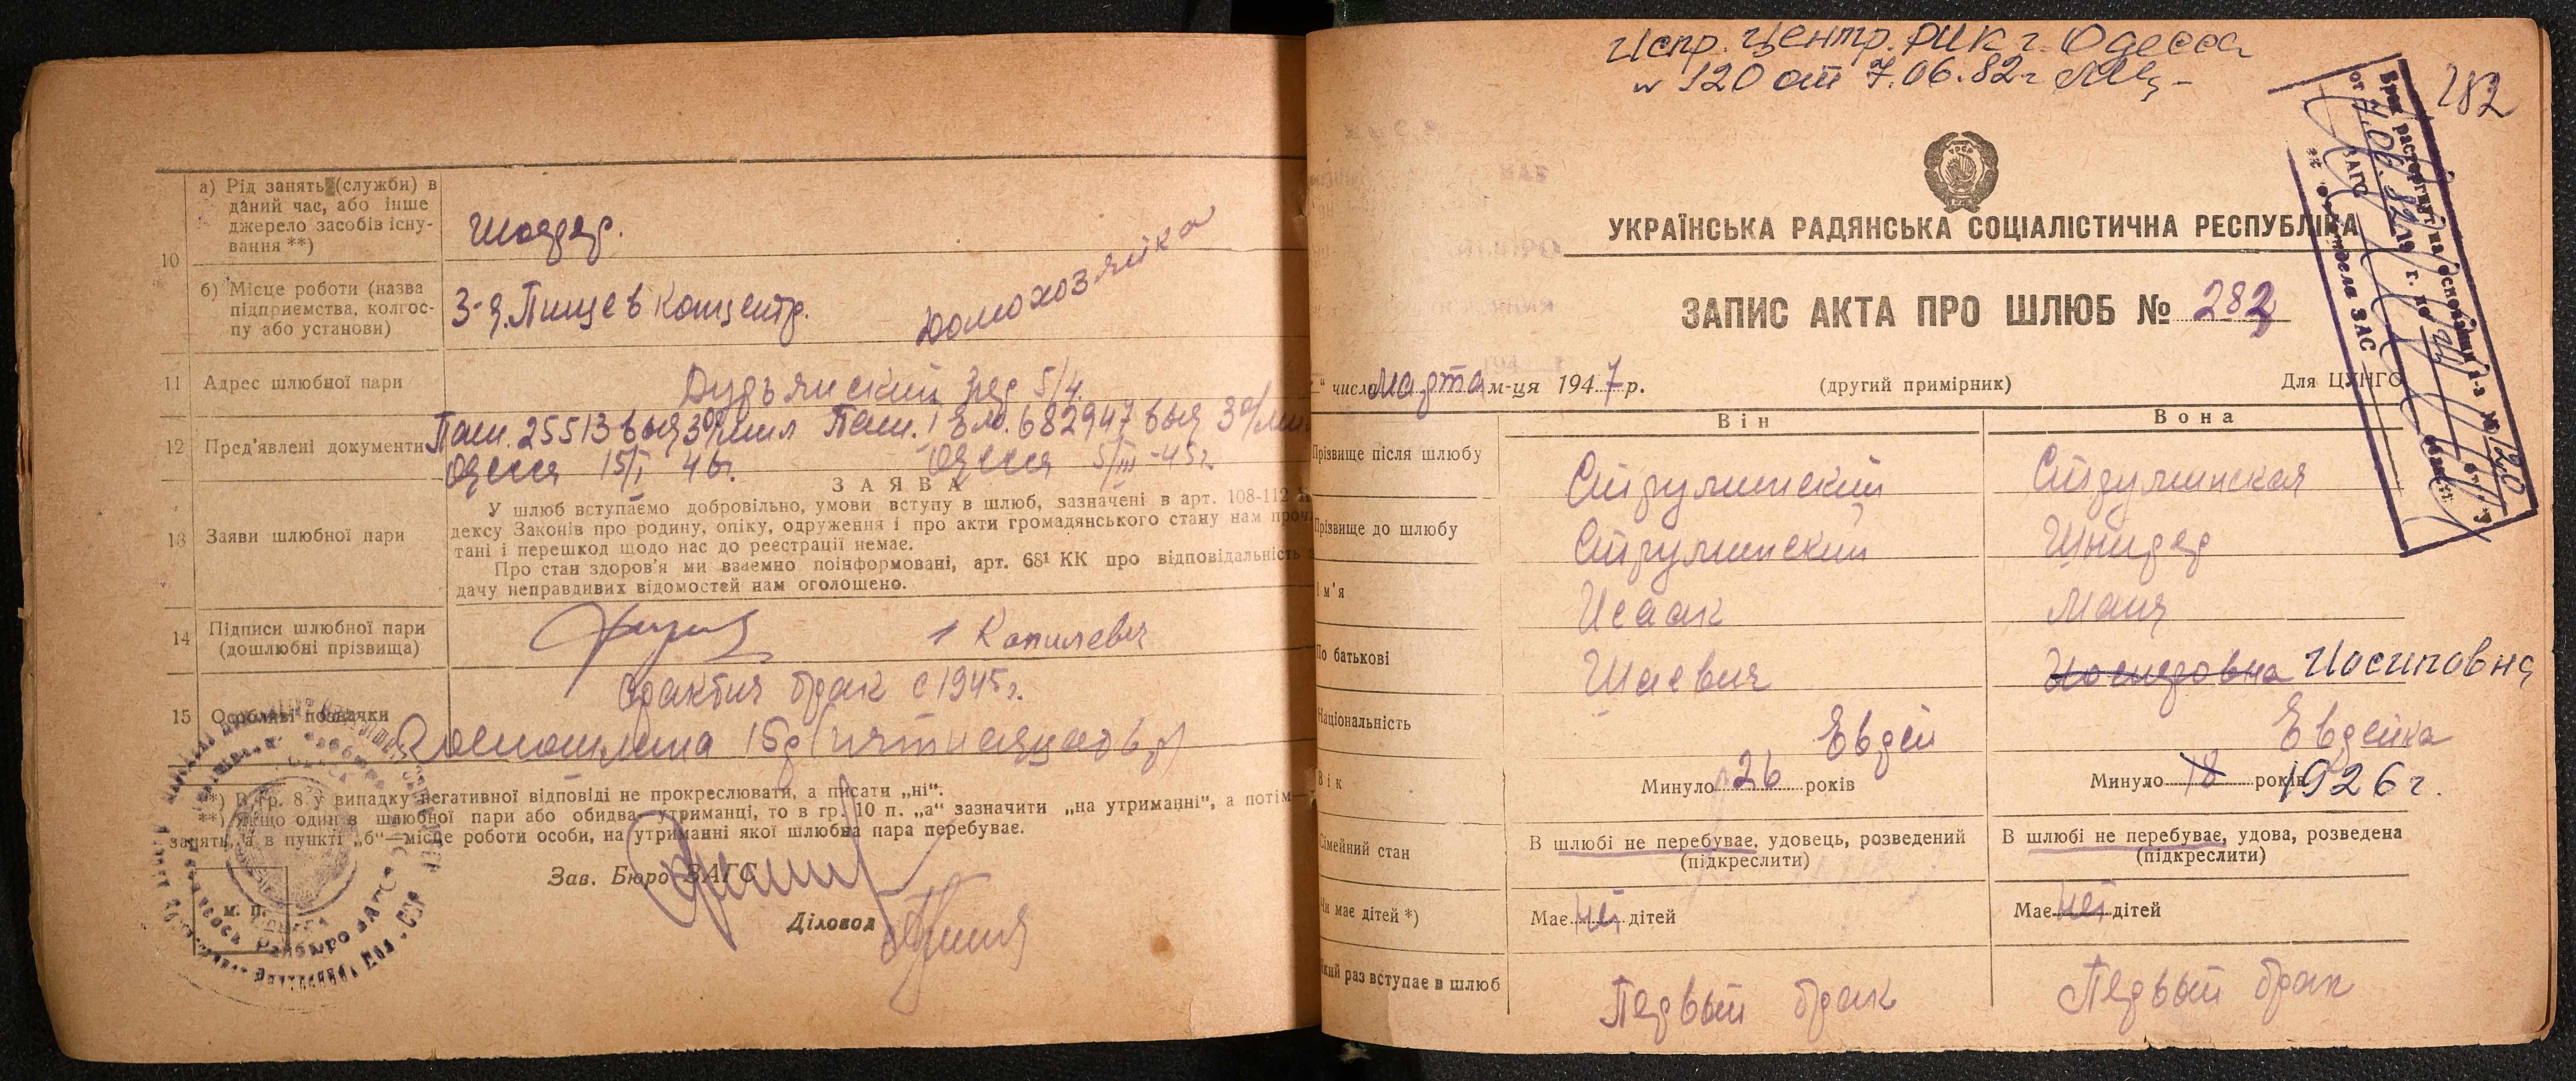 а) Рід занять (служби) в
даний час, або інше
джерело засобів існу-
вання **)
Шоффер.
10
б) Місце роботи (назва
підприємства, колгос-
пу або установи)
З-д. Пищев Концентр.
Домохозяйка
11 Адрес шлюбної пари
5/4.
12 Пред'явлені документи
Пасп. 25513 выд 3 о/мил
Одесса 15/I 46г.
682947 выд 3 о/мил
Одесса 5/III-45г.
ЗАЯВА
13 Заяви шлюбної пари
У шлюб вступаємо добровільно, умови вступу в шлюб, зазначені в арт. 108-112
дексу Законів про родину, опіку, одруження і про акти громадянського стану нам проч
тані і перешкод щодо нас до реєстрації немає.
Про стан здоров'я ми взаємно поінформовані, арт. 68¹ КК про відповідальність
дачу неправдивих відомостей нам оголошено.
14 Підписи шлюбної пари
(дошлюбні прізвища)
15 Особливі позначки
брак с 1945г.
15р (пятнадцать р)
*) В гр. 8 у випадку негативної відповіді не прокреслювати, а писати „ні".
**) Якщо один з шлюбної пари або обидва утриманці, то в гр. 10 п. „а" зазначити „на утриманні", а потім
занять, а в пункті „б"—місце роботи особи, на утриманні якої шлюбна пара перебуває.
Зав. Бюро ЗАГС
М. П.
Діловод
Испр. Центр. РИК г. Одесса
N 120 от 7.06.82г
282
Брак расторгнут на основании а-з № 120
от 7.06.82
УКРАЇНСЬКА РАДЯНСЬКА СОЦІАЛІСТИЧНА РЕСПУБЛІКА
ЗАПИС АКТА ПРО ШЛЮБ № 282
" числа марта м-ця 1947 р.
(другий примірник)
Для ЦУНГО
Він
Вона
Прізвище після шлюбу
Струлинский
Струлинская
Прізвище до шлюбу
Струлинский
Шнидер
Ім'я
Исаак
Маня
По батькові
Шаевич
Иосиповна
Національність
Еврей
Еврейка
Вік
Минуло 26 років
Минуло 18 років 1926г.
Сімейний стан
В шлюбі не перебуває, удовець, розведений
(підкреслити)
В шлюбі не перебуває, удова, розведена
(підкреслити)
Чи має дітей *)
Має нет дітей
Має нет дітей
Який раз вступає в шлюб
Первый брак
Первый брак